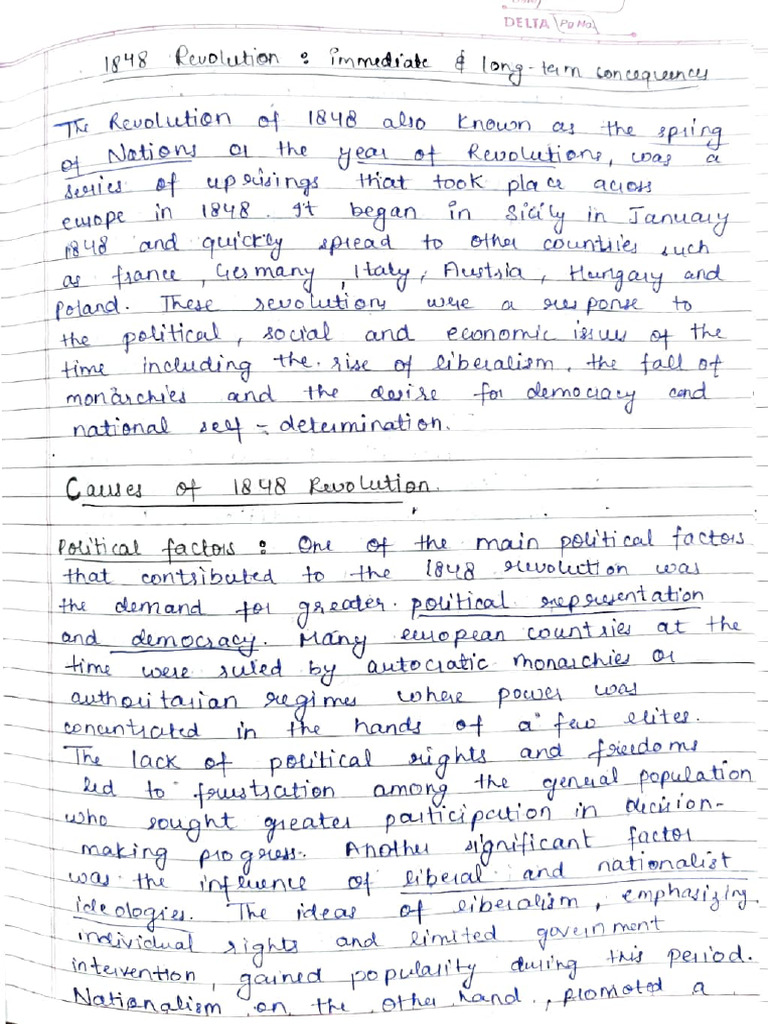 DELTA Pg No.
1848 Revolution : immediate & long-term concequences
The Revolution of 1848 also known as the spring
of Nations or the year of Revolutions, was a
series of uprisings that took place across
europe in 1848. It began in Sicily in January
1848 and quickly spread to other countries such
as france, Germany, Italy, Austria, Hungary and
Poland. These revolutions were a response to
the political, social and economic issues of the
time including the rise of liberalism, the fall of
monarchies and the desire for democracy and
national self-determination.
Causes of 1848 Revolution.
Political factors : One of the main political factors
that contributed to the 1848 revolution was
the demand for greater political representation
and democracy. Many european countries at the
time were ruled by autocratic monarchies or
authoritarian regimes where power was
concentrated in the hands of a few elites.
The lack of political rights and freedoms
led to frustration among the general population
who sought greater participation in decision-
making progress. Another significant factor
was the influence of liberal and nationalist
ideologies. The ideas of liberalism, emphasizing
individual rights and limited government
intervention, gained popularity during this period.
Nationalism on the other hand, promoted a